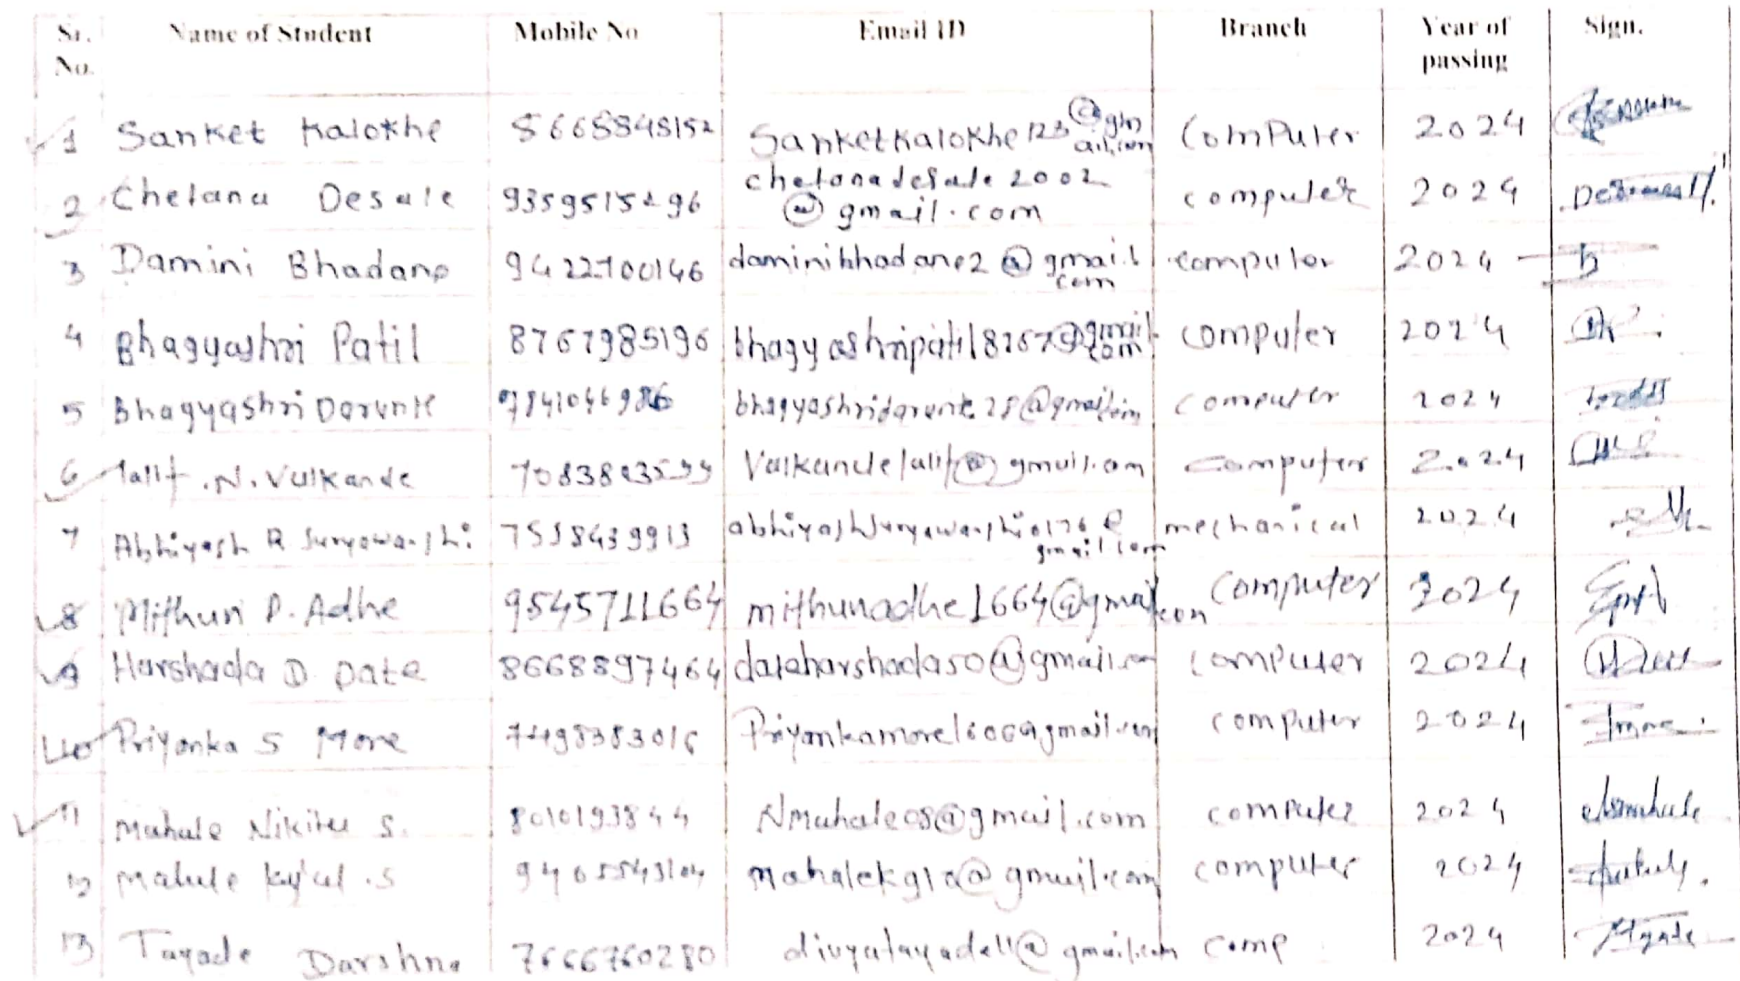 Sr. No. Name of Student Mobile No Email ID Branch Year of passing Sign.
1 Sanket Kalokhe 8668848152 Sanketkalokhe123@gmail.com Computer 2024
2 Chetana Desale chetanadesale2002@gmail.com computer 2024
3 Damini Bhadane 9422700146 daminibhadane2@gmail.com computer 2024
4 Bhagyashri Patil 8767985196 bhagyashripatil8767@gmail.com computer 2024
5 Bhagyashri Darunte computer 2024
6 lalit .N. Valkande Valkandelalit@gmail.com computer 2024
7 Abhiyash R Suryawanshi mechanical 2024
8 Mithun D. Adhe 9545711664 mithunadhe1664@gmail.com Computer 2024
9 Harshada D Date 8668897464 dateharshada50@gmail.com computer 2024
10 Priyanka S More 7498383016 Priyankamore1606@gmail.com computer 2024
11 Mahale Nikita S. 8010193844 Nmahale08@gmail.com computer 2024
12 Mahale S computer 2024
13 Tayade Darshna 7666760280 divyatayade11@gmail.com comp 2024